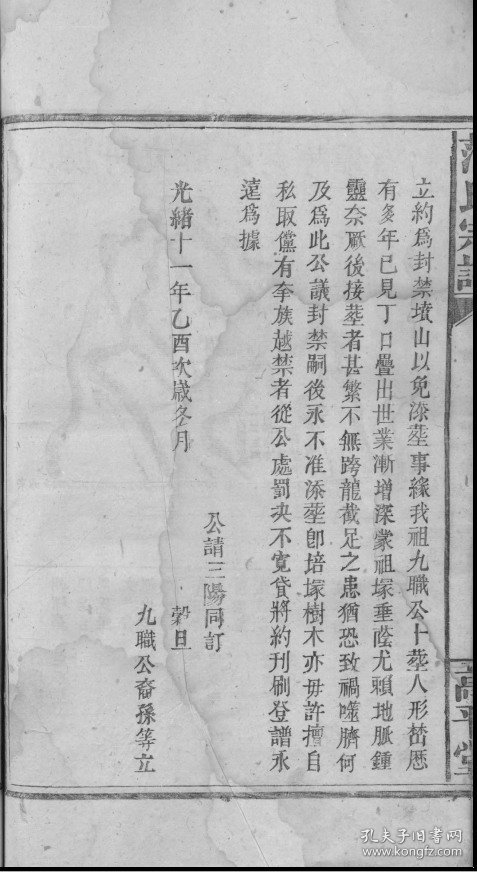 立約爲封禁墳山以免添塟事緣我祖九職公卜塟人形嵆厯
有多年已見丁口疊出世業漸增深蒙祖塚垂蔭尤賴地脈鍾
靈奈厥後接塟者甚繁不無跨龍截足之患猶恐致禍噬臍何
及爲此公議封禁嗣後永不准添塟卽培塚樹木亦毋許擅自
私取儻有夅族越禁者從公處罰决不寬貸將約刊刷登譜永
遠爲據
公請三陽同訂
光緒十一年乙酉次嵗冬月 榖旦
九職公裔孫等立
氏宗譜
高平堂
孔夫子旧书网
www.kongfz.com